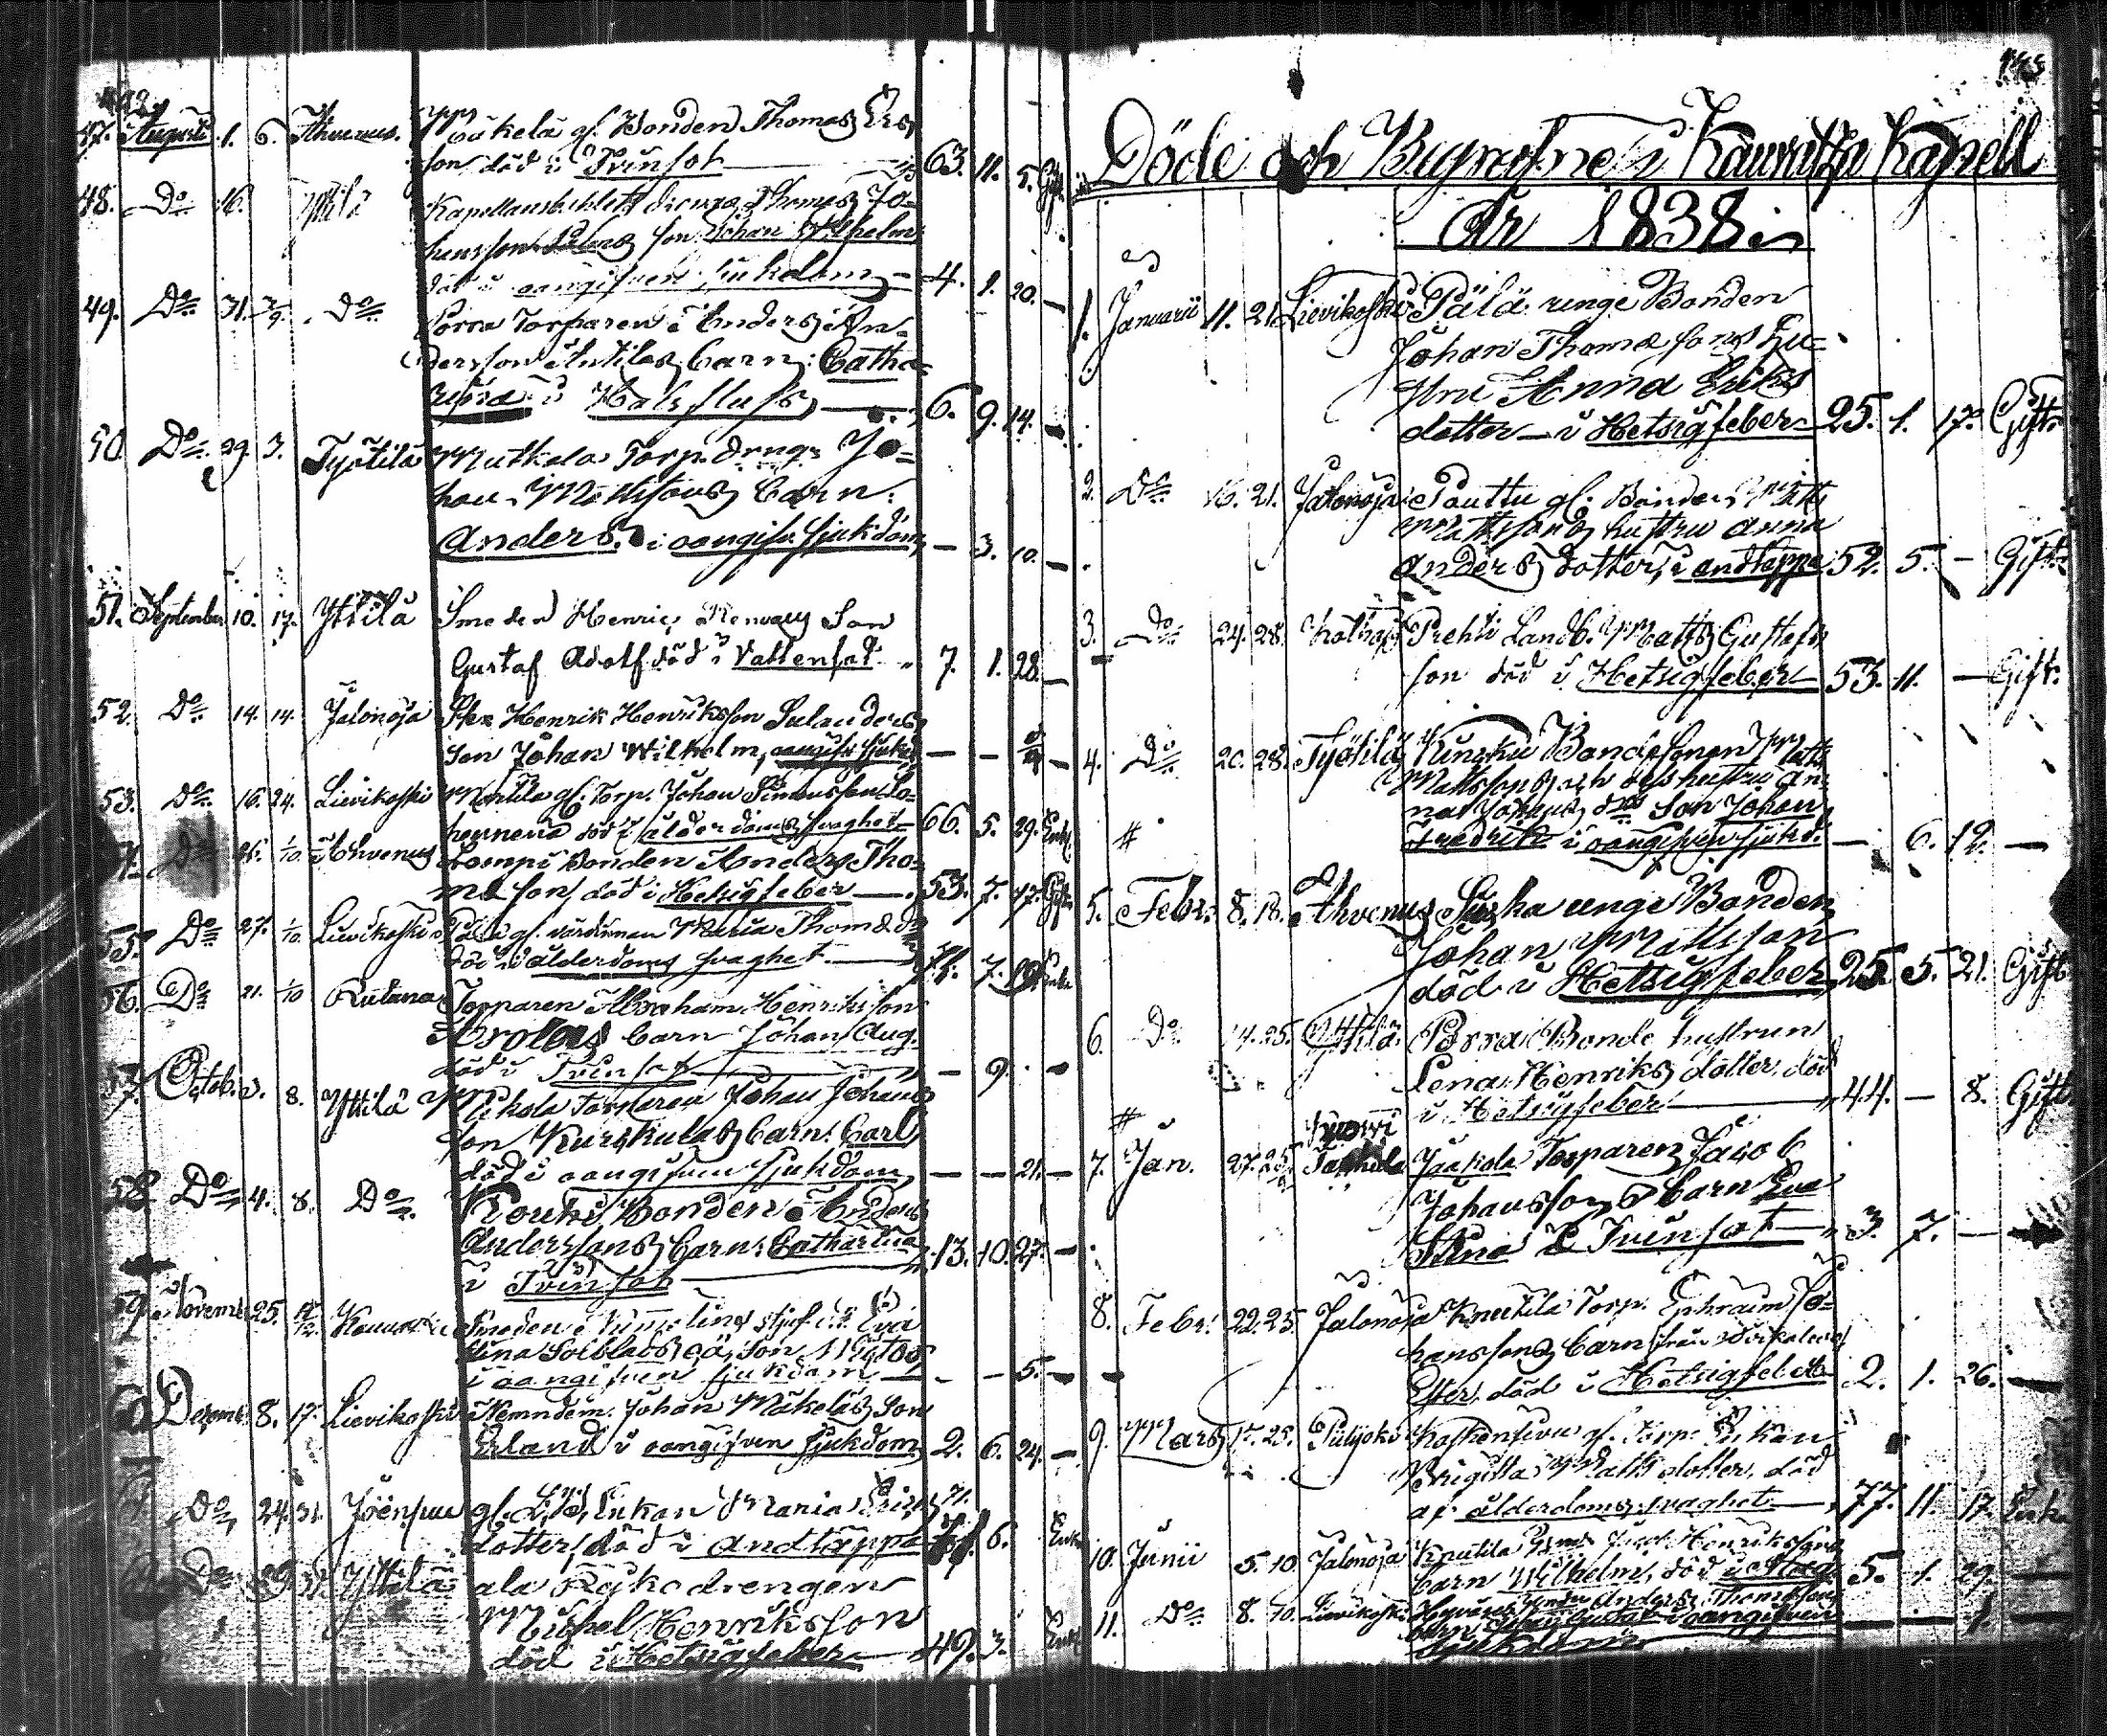 47. Augusti 1. 6. Ahvenus. gl. Bonden Thomas Ers
son död i Tvinsot 63. 11. 5. Gift
48. Do 16. Yttilä Kapellansbohlets drengs Thomas Jo=
hansson son Johan Wilhelm
död i oangifven sjukdom 4. 1. 20. —
49. Do 31. 3/9. Do Porra Torparen Anders An=
dersson Anttilas barn: Catha=
rina i Halsfluss 6. 9. 14. —
50. Do 29. 3. Työtilä Mutkala Torp. drngs Jo=
han Mattsons barn:
Anders i oangifv. sjukdom — 3. 10. —
51. September 10. 17. Yttilä Smeden Henric Son
Gustaf Adolf död i Vattensot 7. 1. 28. —
52. Do 14. 14. Jalonoja Henrik Henriksson Sulanders
son Johan Wilhelm, oangifv. sjukd. — —
53. Do 16. 24. Lievikoski Mattila gl. Torp. Johan Simonsson
död i ålderdoms svaghet 66. 5. 29. Enkl.
Do 25. 1/10. Ahvenus Bonden Anders Tho=
mæ son, död i Hetsigfeber 53. 7. 17. Gift
55. Do 27. 1/10. Lievikoski Pälä gl. värdinnan Maria Thomæ dr
död i ålderdoms svaghet 7. Enka
56. Do 21. 1/10 Rutana Torparen Abraham Henriksson
barn Johan Aug.
död i Tvinsot — 9. —
57. Octob. 8. Yttilä Torparen Johan Johans
son Kurskulas barn: Carl
död i oangifven sjukdom — — 21. —
58. Do 4. 8. Do Rouki Bonden Anders
Anderssons barn: Catharina
i Tvinsot 13. 10. 27. —
59. Novemb. 25. Kauvatsa Smeden stjuf dr. Eva
Stina oä. son
i oangifven sjukdom — — 5. —
Decemb. 8. 17. Lievikoski Nemndem. Johan Mäkeläs Son
Erland i oangifven sjukdom 2. 6. 24. —
Do 24. 31. Joenpuu gl. Enkan Maria Erics
dotter, död i Andtäppa 71. 6. Enka
Do 29. 31. Yttilä ala Ryko drengen
Michel Henriksson
död i Hetsigfeber 49. 3. Enkl.
Döde och Begrofne i Kauvatsa Kapell
År 1838
1. Januarii 11. 21. Lievikoski Pälä unge Bonden
Johan Thomæ sons Hu=
stru Anna Eriks
dotter — i Hetsigfeber 25. 1. 17. Gift.
2. Do 16. 21. Jalonoja Pauttu gl. Bonden Matts
Mattsons hustru Anna
Anders dotter, i andtäppa 52. 5. — Gift.
3. Do 24. 28. Prehti Landb. Matts Gustafs
son död i Hetsigfeber 53. 11. — Gift.
4. Do 20. 28. Työtilä Bondesonen Matts
Mattsons och dess hustru An=
na Johans dr Son Johan
Fredrik i oangifven sjukd. — 6. 12. —
#
5. Febr. 8. 18. Ahvenus unge Bonden
Johan Mattsson
död i Hetsigfeber 25. 5. 21. Gift
6. Do 14. 25. Yttilä Porra Bonde hustrun
Lena Henriks dotter, död
i Hetsigfeber 44. — 8. Gift
#
7. Jan. 27. Jaakola Torparen Jacob
Johanssons barn Eva
Stina i Tvinsot 3. 7. —
8. Febr. 22. 25. Jalonoja Knutila Torp. Ephraim Jo=
hanssons barn från
Ester, död i Hetsigfeber 2. 1. 26. —
9. Mars 17. 25. Piilijoki gl. Torp. Enkan
Brigitta Matts dotter, död
af ålderdoms svaghet 77. 11. 17. Enka
10. Junii 5. 10. Jalonoja Knutila Henrikssons
barn Wilhelm, död i 5. 1. 29. —
11. Do 8. 10. Lievikoski Anders Thomassons
barn Johan Gustaf i oangifven
sjukdom — 1. —